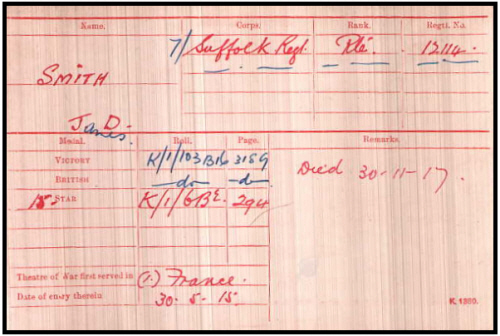 Name. Corps. Rank. Regtl. No.
7/Suffolk Regt. Pte. 12114.
SMITH
J D.
James.
Medal. Roll. Page. Remarks.
VICTORY K/1/103B16 3159
BRITISH —do— —d—
15 STAR K/1/6BE. 294
Died 30-11-17.
Theatre of War first served in (1.) France.
Date of entry therein 30-5-15.
K. 1380.